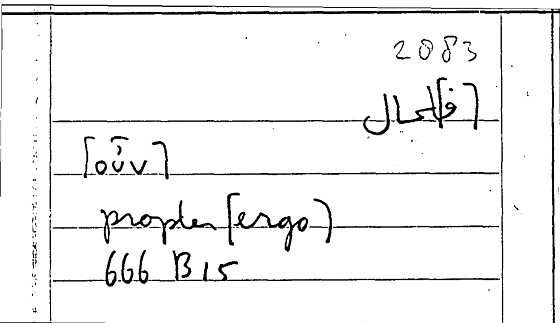 2083
[ف]الحال
[οὖν]
propter [ergo]
666 B 15